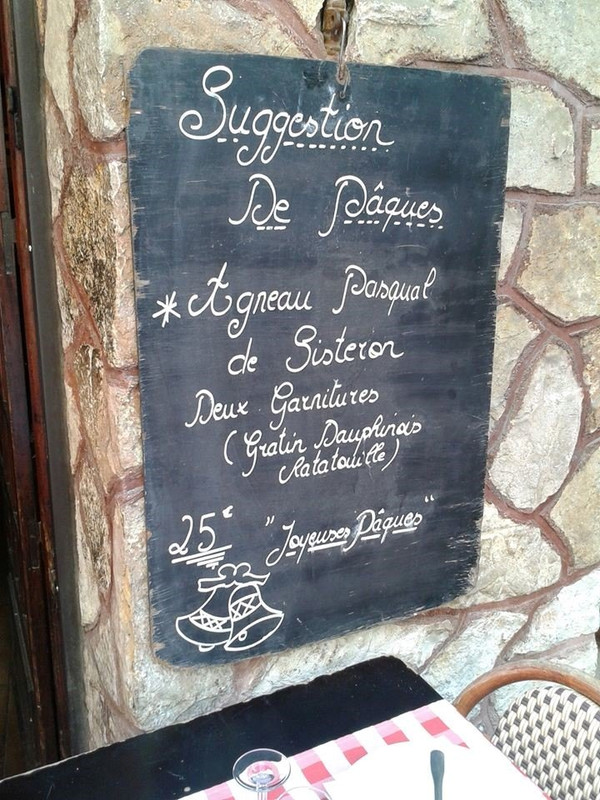 Suggestion
De Pâques
* Agneau Pasqual
de Sisteron
Deux Garnitures
(Gratin Dauphinois
Ratatouille)
25€ "Joyeuses Pâques"